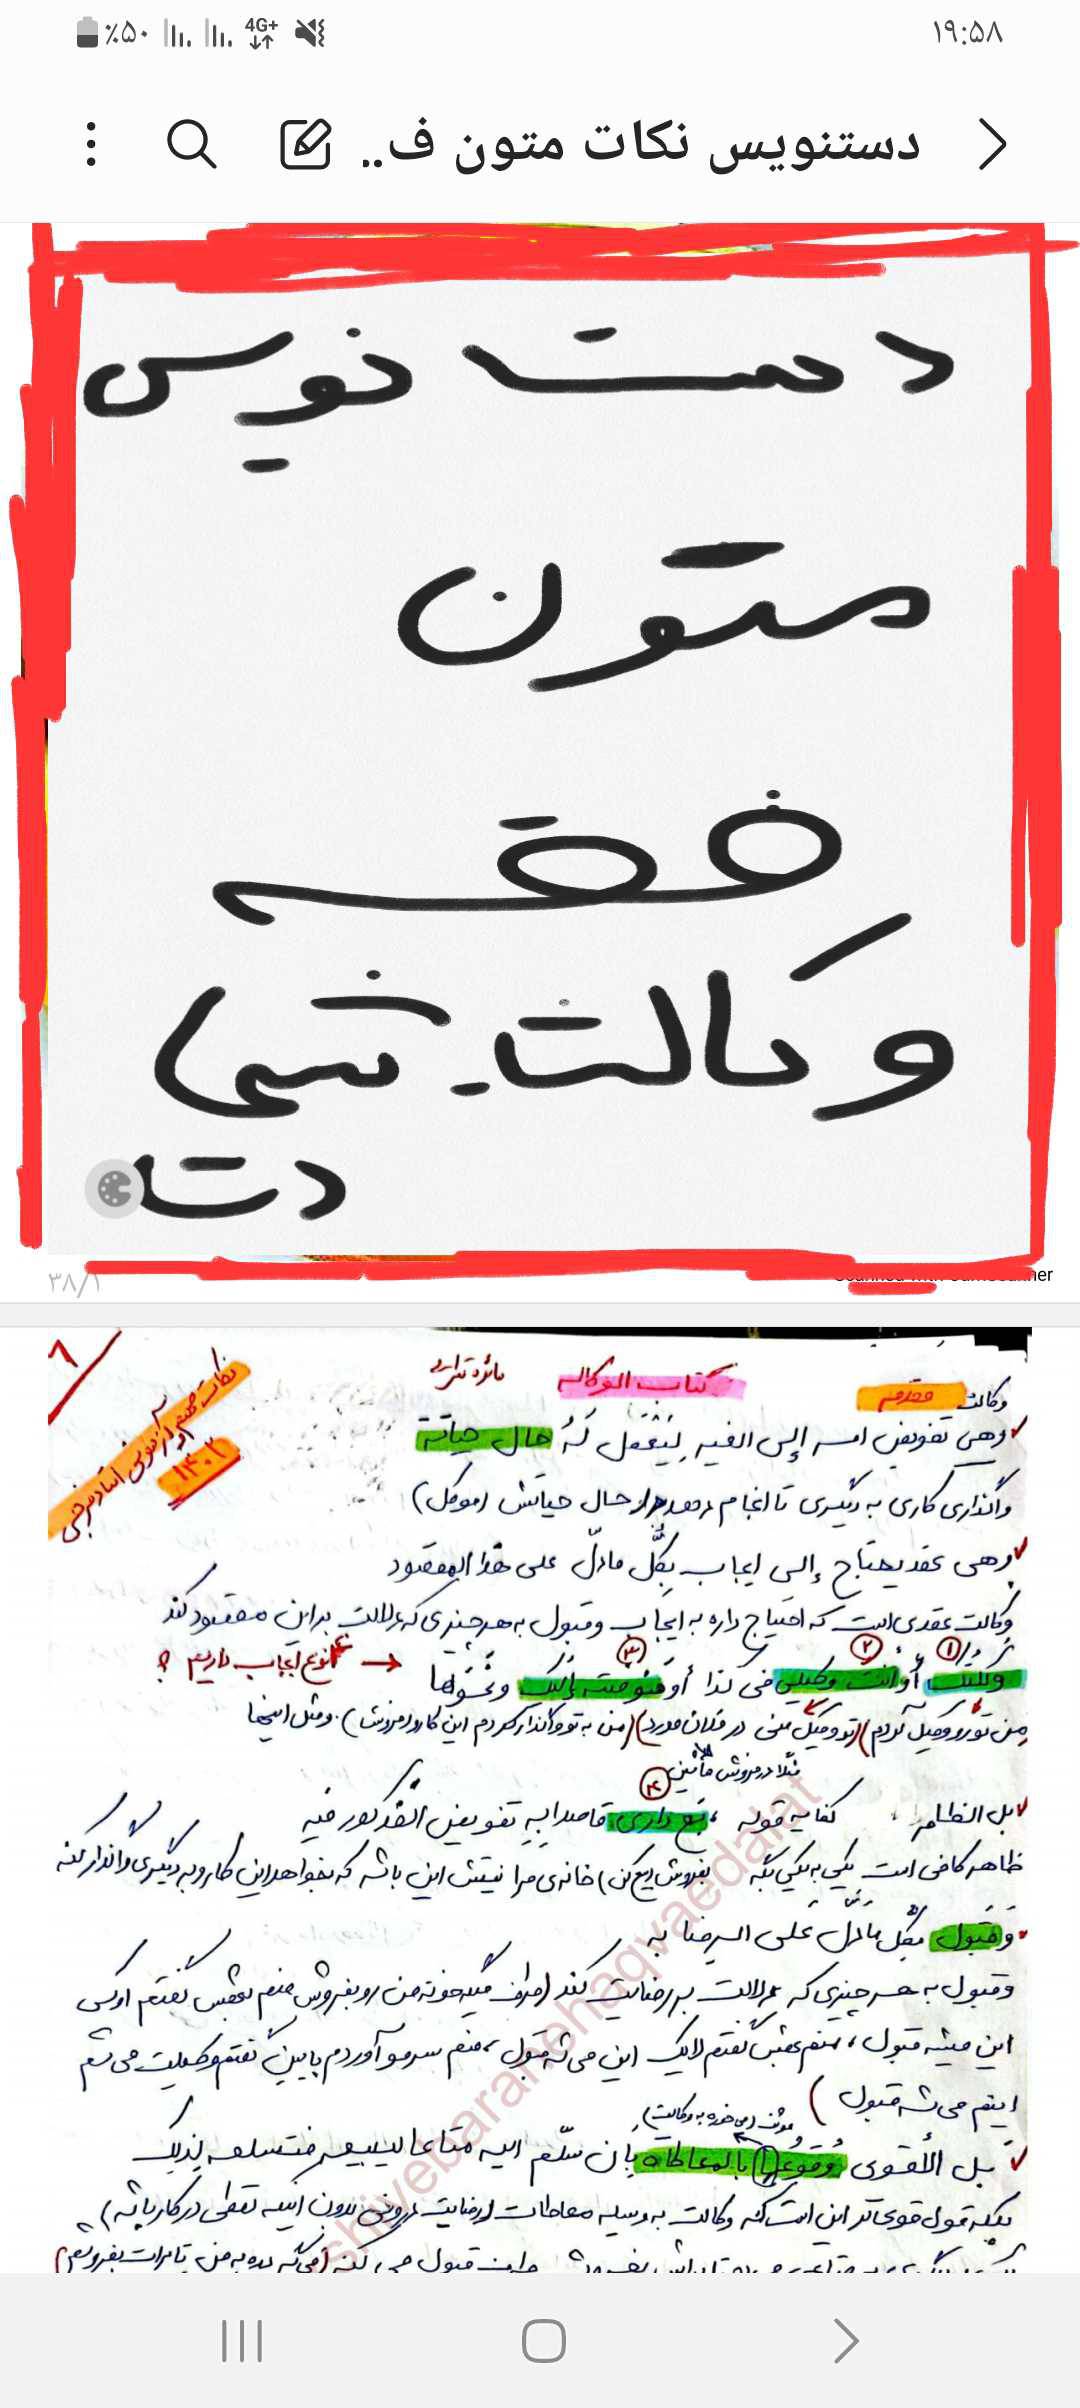 ۱۹:۵۸ 4G+ ٪۵۰
دستنویس نکات متون ف..
دست نویس
متون
فقه
وکالت.
دتا
۳۸/۱
وکالت مقدمه کتاب الوکاله
نکات مهم از
۱۴۰۲
وهی تفویض امر إلی الغیر لیَفعَل لَهُ حال حیاته
واگذاری کاری به دیگری تا انجام دهد در حال حیاتش (موکل)
وهی عقد یحتاج إلی ایجاب بِکُلِّ مادلّ علی هذا المقصود
وکالت عقدی است که احتیاج داره به ایجاب وقبول به هر چیزی که دلالت بر این مقصود کند
۱ ۲ ۳
وکّلتک أو أنت وکیلی فی کذا أو فوضته إلیک و نحوها → نوع ایجاب داریم ؟
من تو رو وکیل کردم) (تو وکیل منی در فلان مورد) (من به تو واگذار کردم این کارو در فروش). ومثل اینها
مثلا در فروش ماشین
۴
بل الظاهر کفایه قوله ، بع داری، قاصدا به تفویض المذکور فیه
ظاهر کافی است یکی به یکی بگه بفروش (بیع کن) خانه‌ی مرا نیتش این باشه که بخواهد این کارو به دیگری واگذار کنه
وَ قبول بکل مادل علی الرضا به
وقبول به هر چیزی که دلالت بر رضایت کند (طرف میگه خونه من رو بفروش منم بهش گفتم اوکی
این میشه قبول ، منم بهش گفتم لایک این می‌شه قبول ، منم سرمو آوردم پایین گفتم وکیلت می‌شم
اینم می‌شه قبول )
مونث (می‌خوره به وکالت)
بل الأقوی وقوعُها بالمعاطاه بأن سلّم الیه متاعا لیبیعه فتسلمه لذلک
بلکه قول قوی‌تر این است که وکالت به وسیله معاطات (رضایت درونی بدون اینکه لفظی در کار باشه)